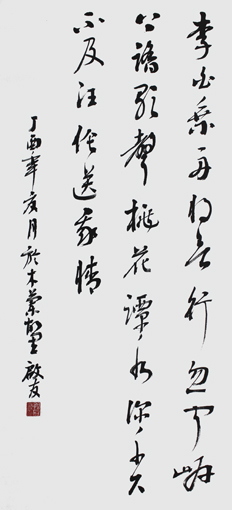 李白乘舟将欲行忽闻岸
上踏歌聲桃花潭水深千尺
不及汪倫送我情
丁酉年夏月於木蘭墅啟友